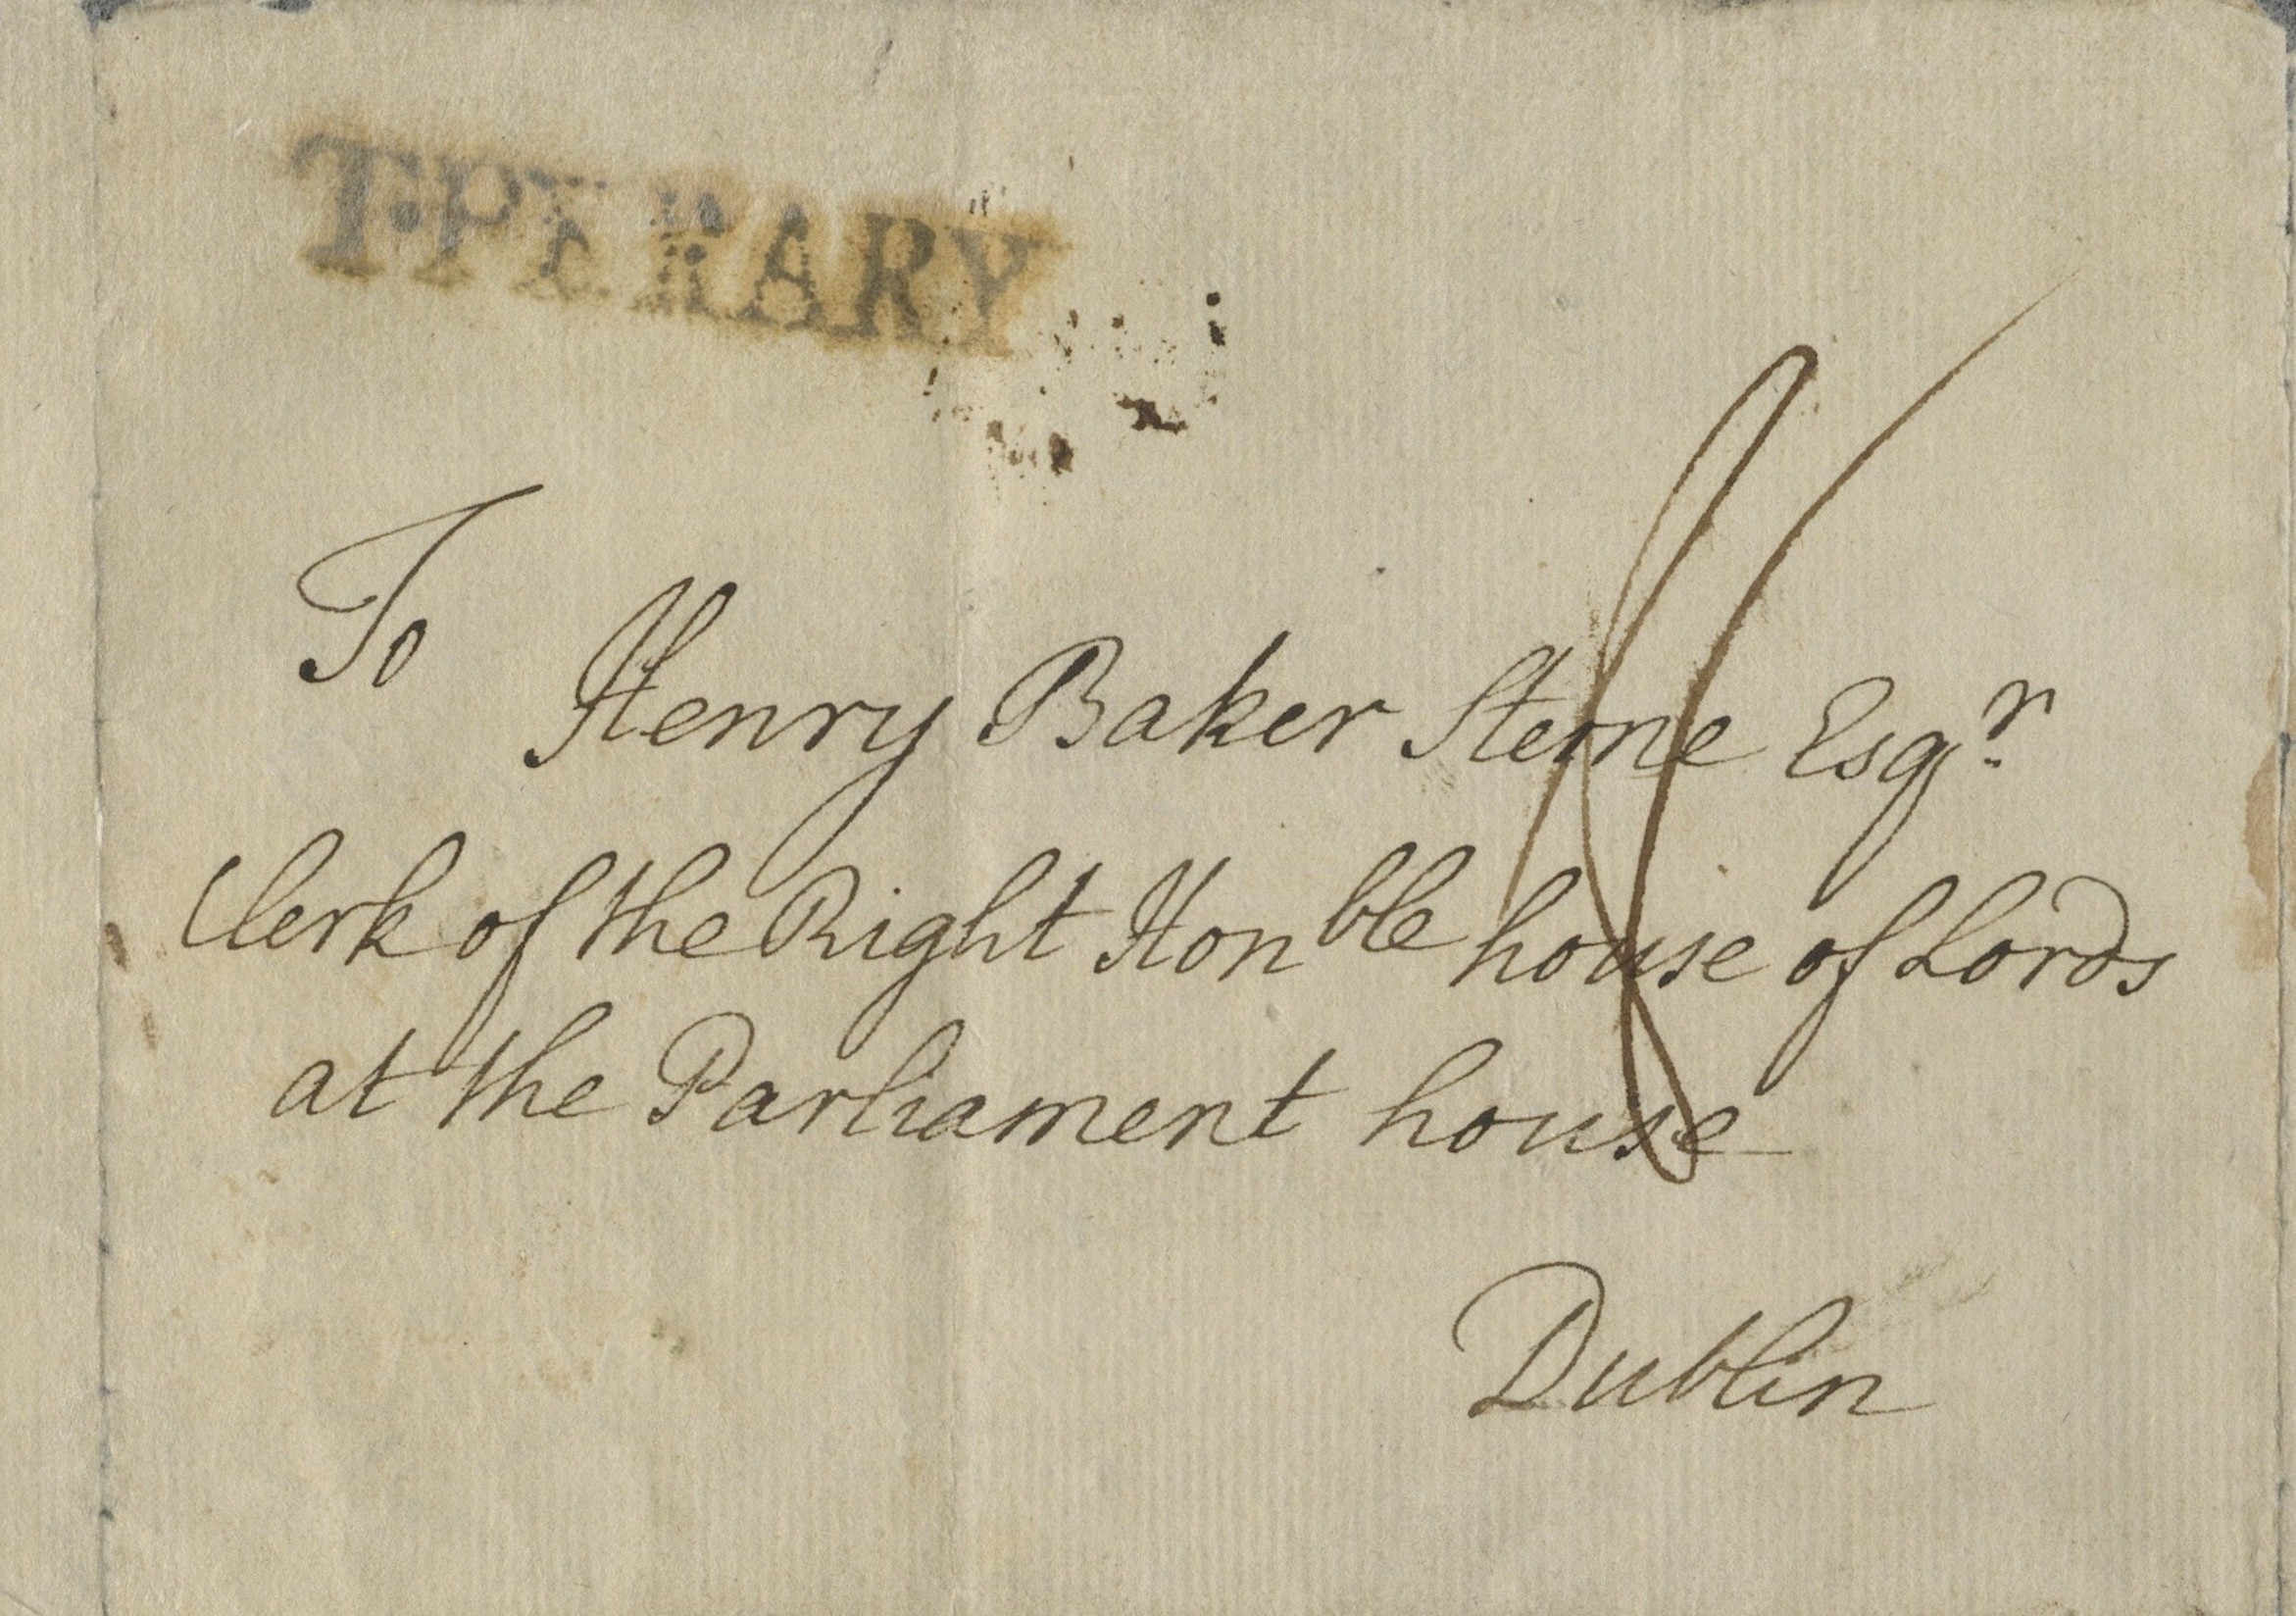 To
Henry Baker Sterne Esqr.
Clerk of the Right Honble house of Lords
at the Parliament house
Dublin